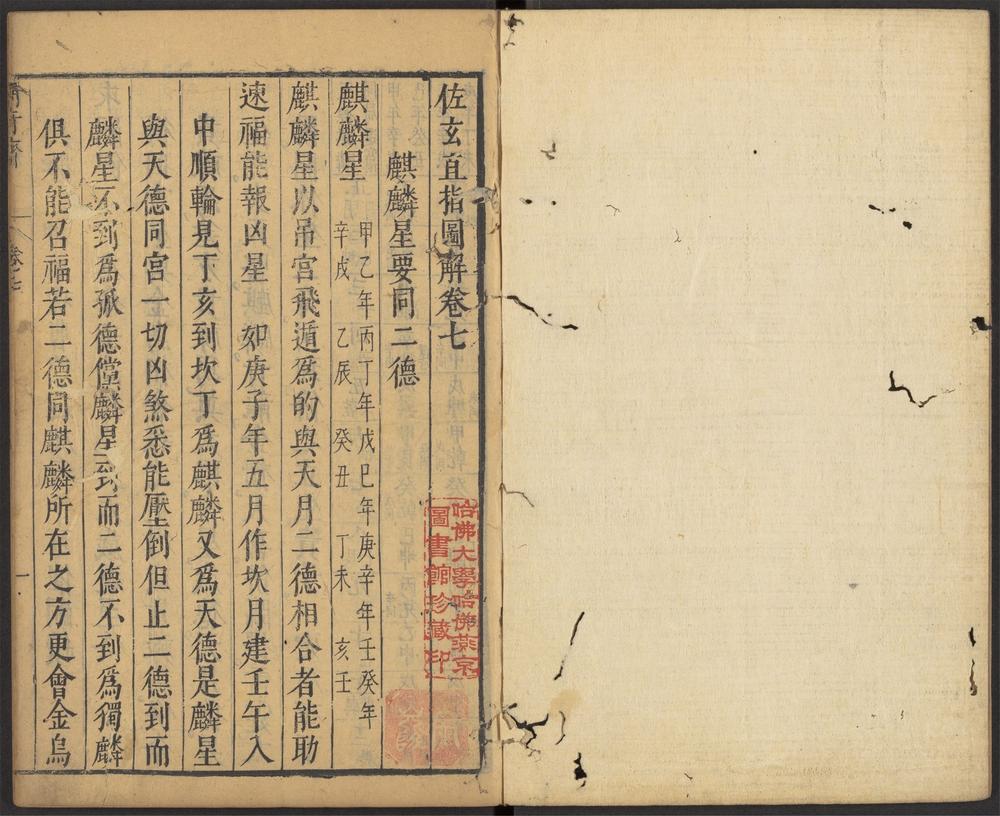 佐玄直指圖解卷七
麒麟星要同二德
麒麟星
甲乙年丙丁年戊巳年庚辛年壬癸年
辛戌 乙辰 癸丑 丁未 亥壬
麒麟星以吊宮飛遁爲的與天月二德相合者能助
速福能報凶星 如庚子年五月作坎月建壬午入
中順輪見丁亥到坎丁爲麒麟又爲天德是麟星
與天德同宮一切凶煞悉能壓倒但止二德到而
麟星不到爲孤德儻麟星到而二德不到爲獨麟
俱不能召福若二德同麒麟所在之方更會金烏
卷七
一
哈佛大學哈佛燕京
圖書館珍藏印